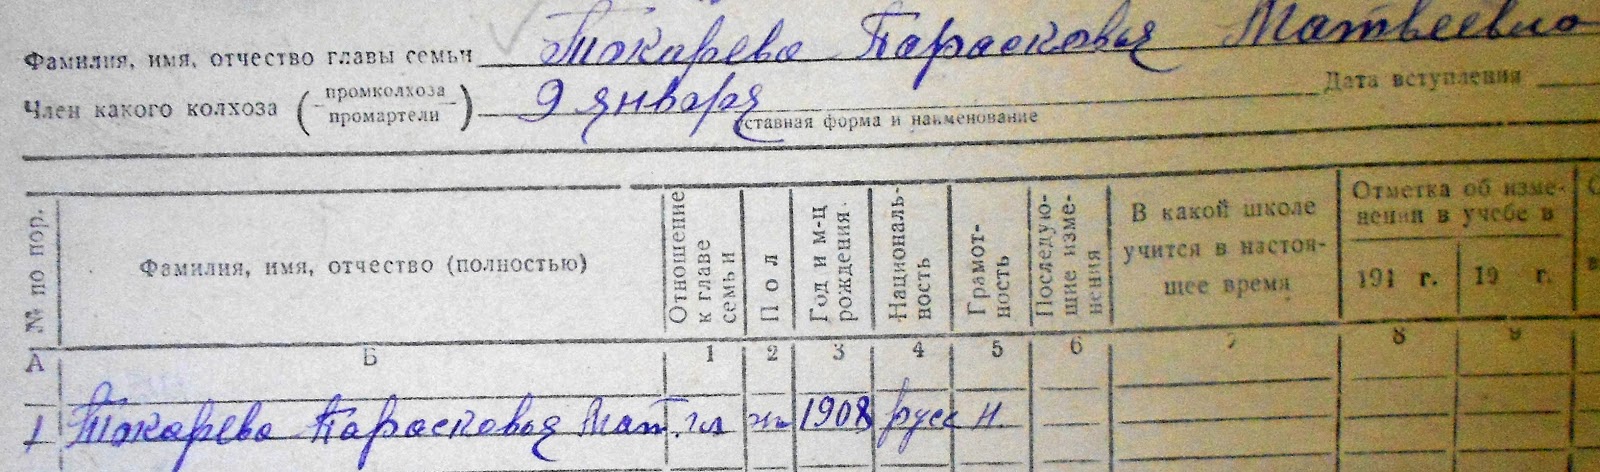 Фамилия, имя, отчество главы семьи Токарева Парасковья Матвеевна
Член какого колхоза ( промколхоза / промартели ) 9 января Дата вступления
уставная форма и наименование
№ по пор.
Фамилия, имя, отчество (полностью)
Отношение к главе семьи
Пол
Год и м-ц рождения
Националь-
ность
Грамот-
ность
Последую-
щие изме-
нения
В какой школе
учится в настоя-
щее время
Отметка об изме-
нении в учебе в
191 г. 19 г.
А Б 1 2 3 4 5 6 7 8 9
1 Токарева Парасковья Мат. гл ж 1908 русс н.